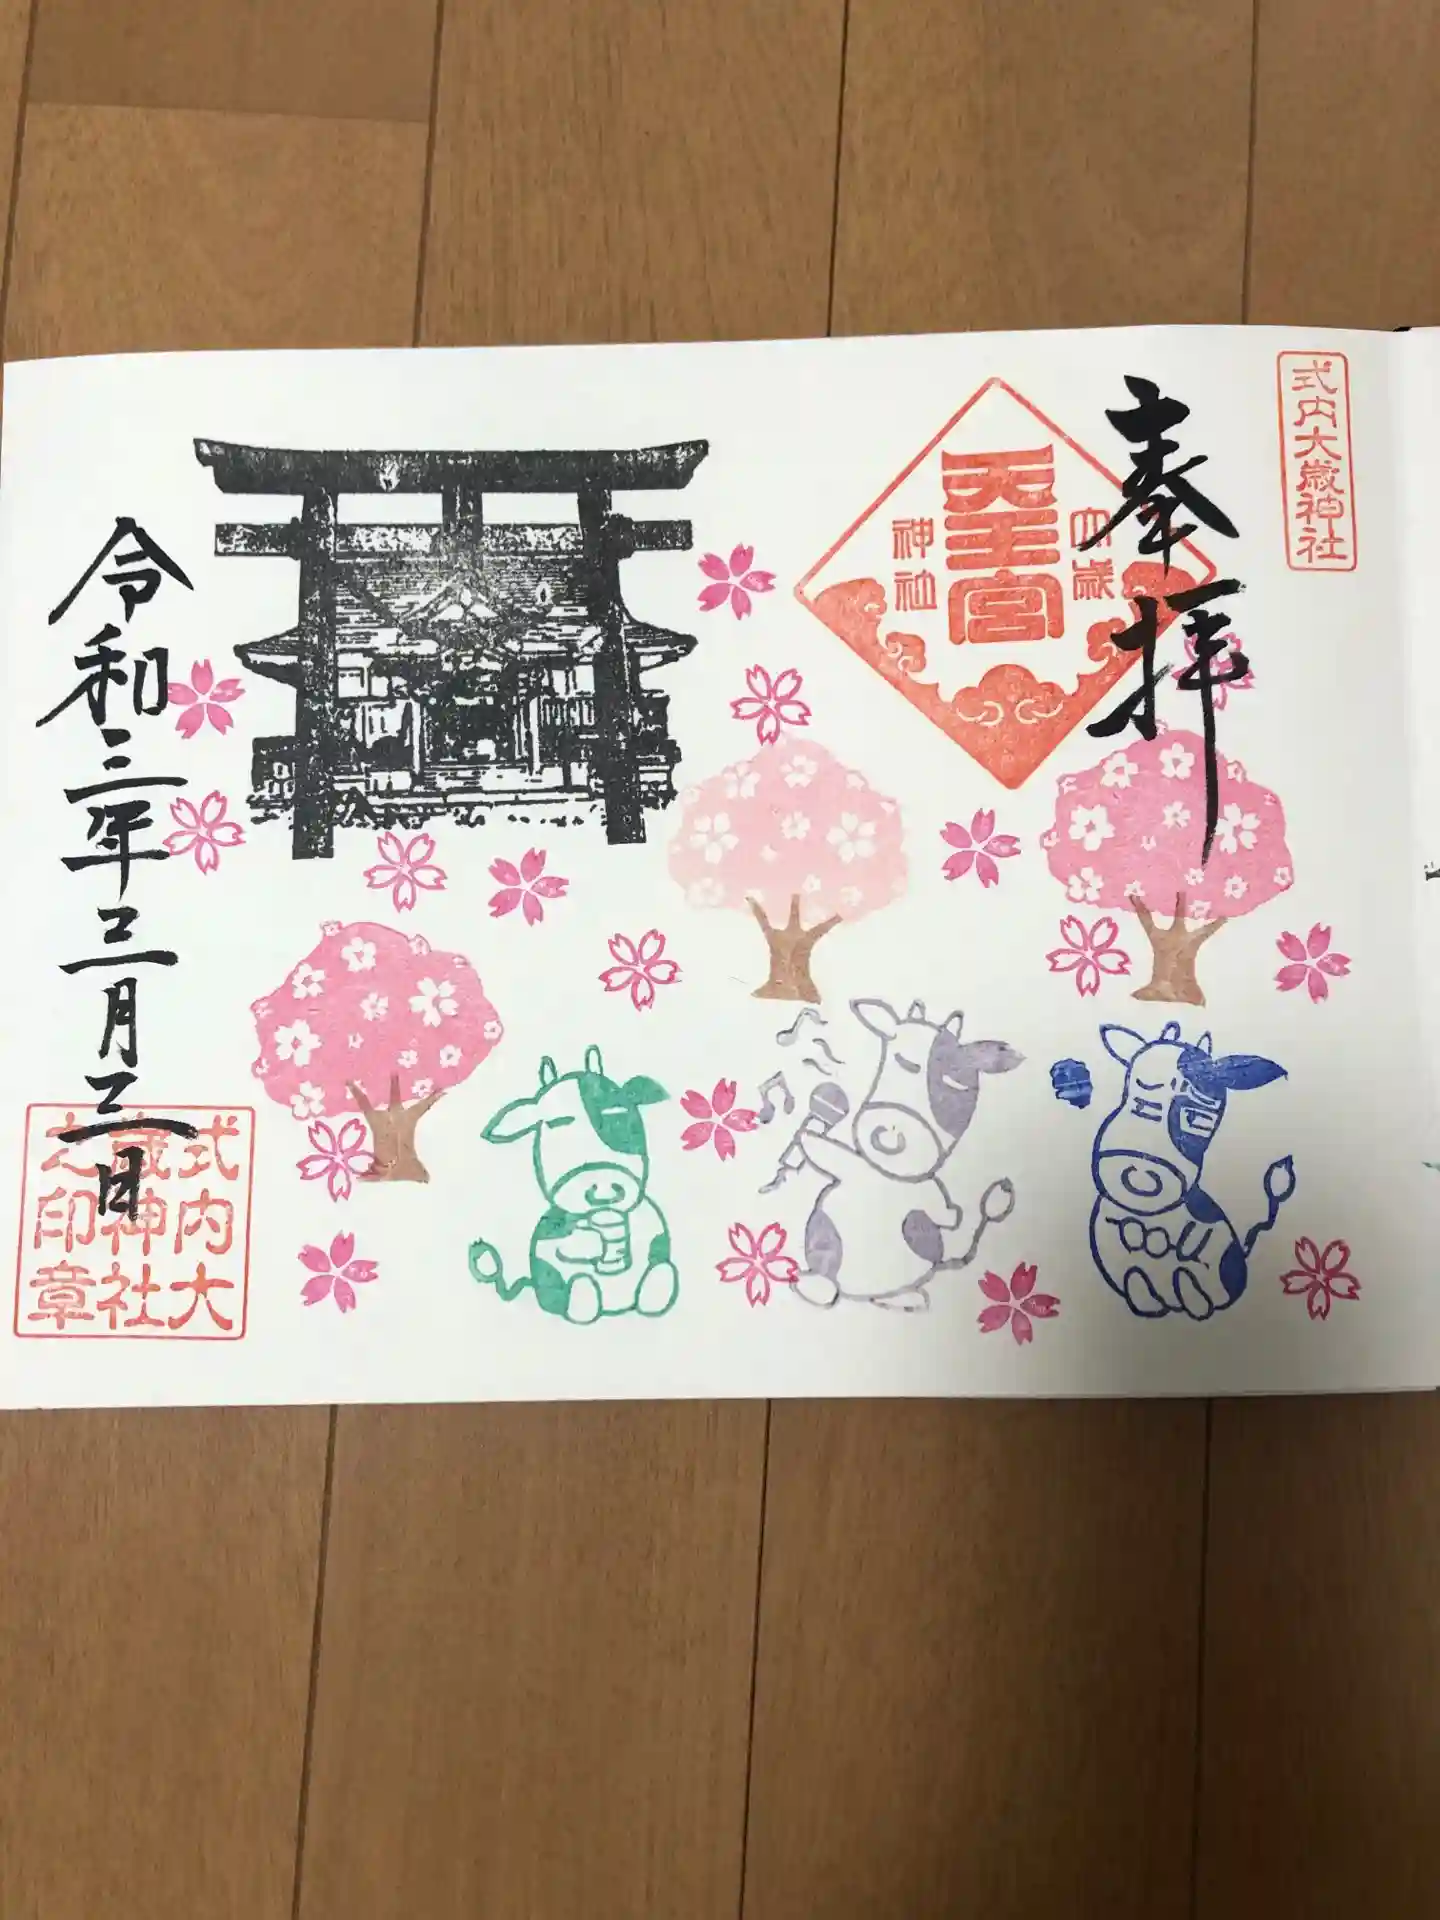 式内大歳神社
奉拝
大歳
天王宮
神社
令和三年三月三日
式内大
歳神社
之印章